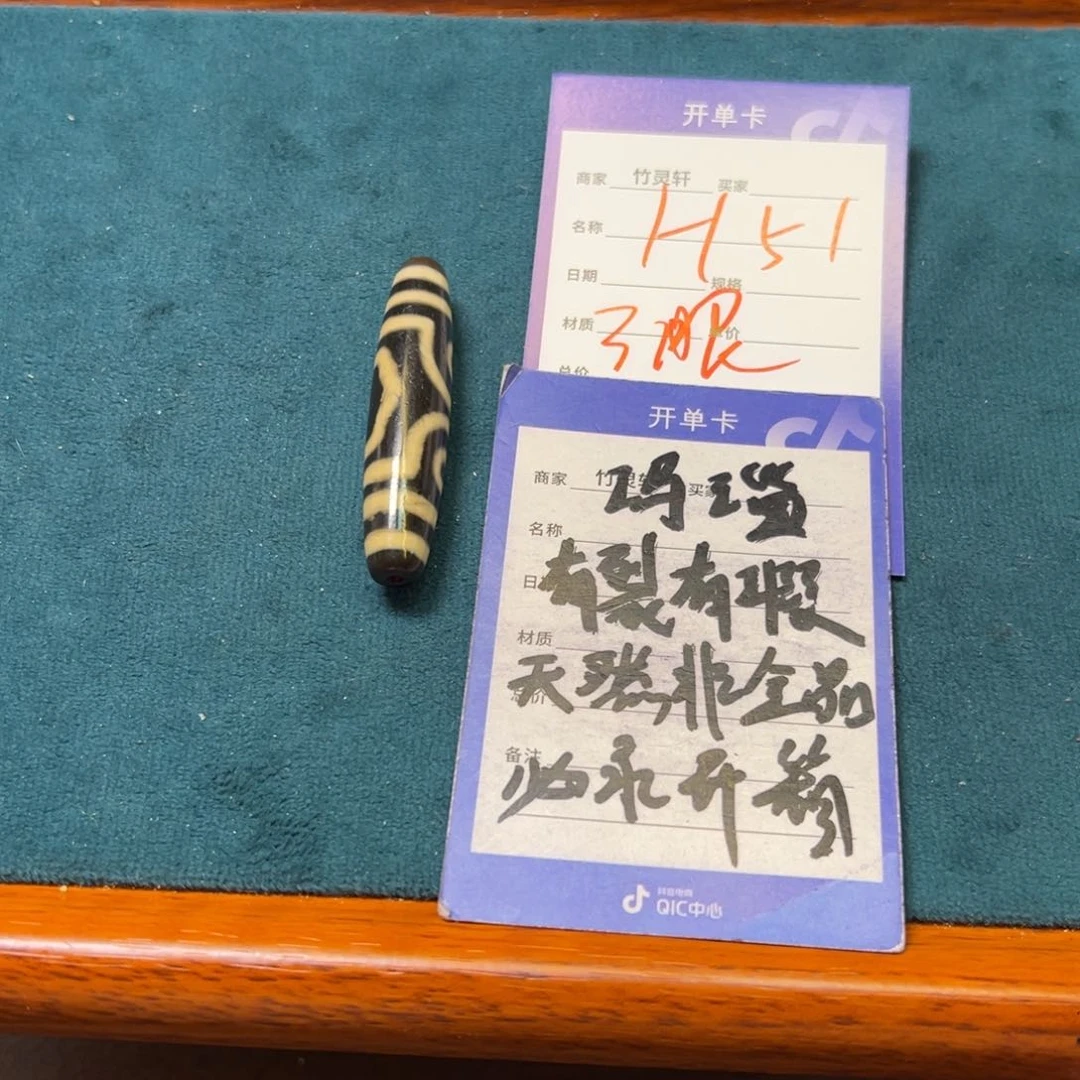 开单卡
商家 竹灵轩 买家
名称 H51
日期 规格
材质 3眼 单价
总价
开单卡
商家 竹灵轩 买家
玛瑙
名称
有裂有瑕
日期
材质
天然非全品
总价
备注
必录开箱
抖音电商
QIC中心